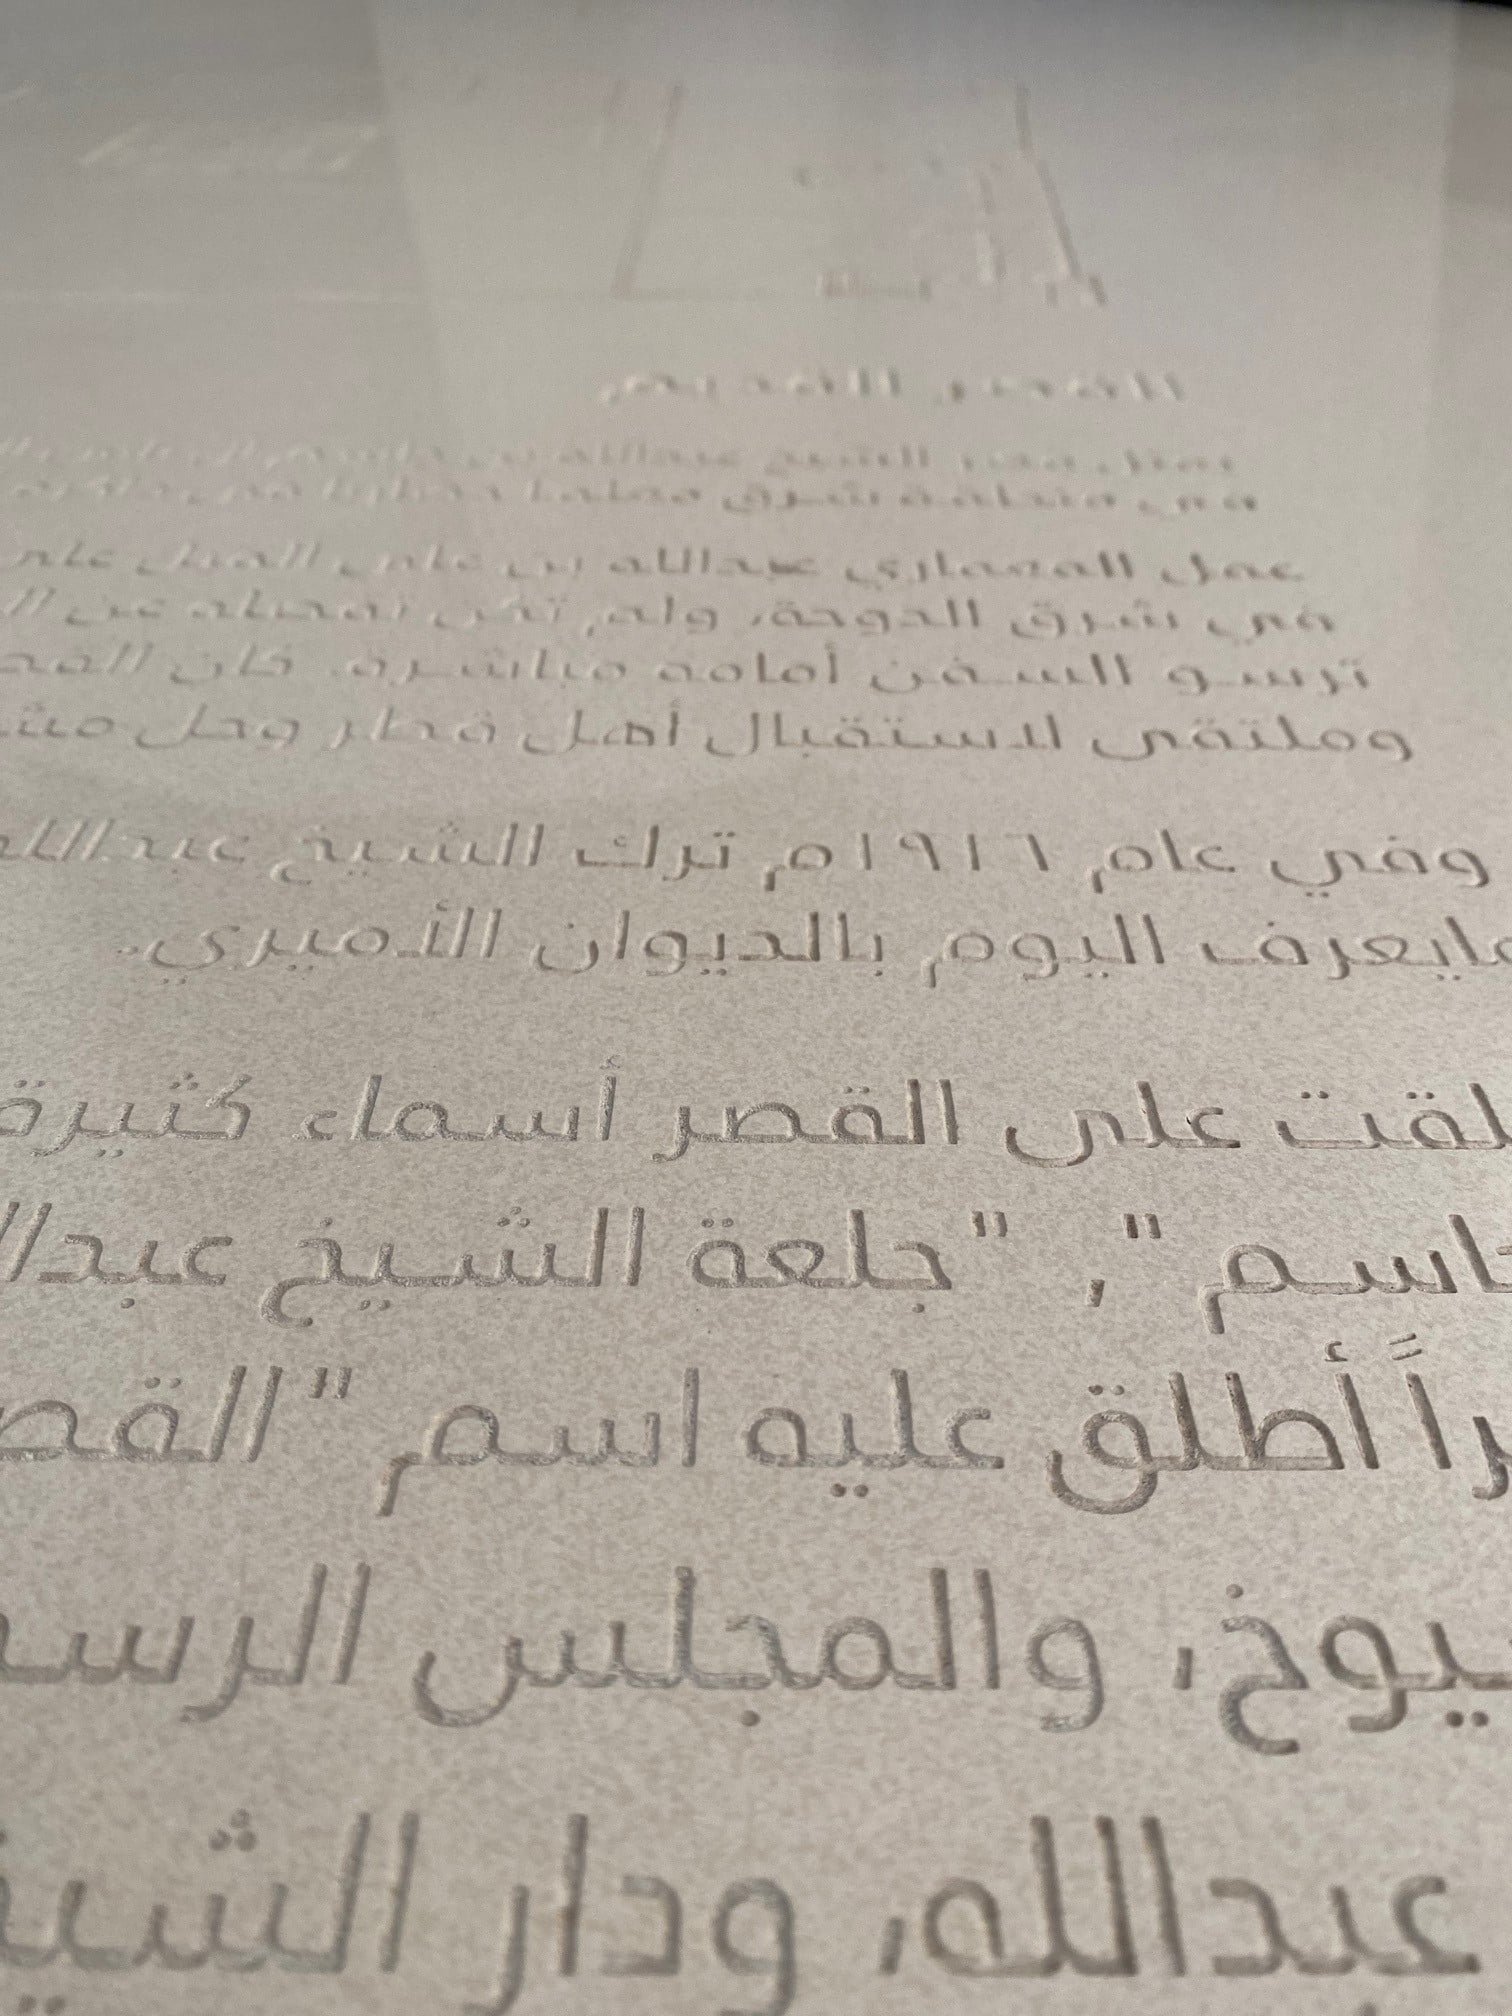 القصر القديم
يمثل قصر الشيخ عبدالله بن جاسم آل ثاني
في منطقة شرق معلما
عمل المعماري عبدالله بن علي الميل على
في شرق الدوحة، ولم تكن تفصله عن
ترسو السفن أمامه مباشرة. كان
وملتقى لاستقبال أهل قطر وحل
وفي عام ١٩١٦م ترك الشيخ عبدالله
مايعرف اليوم بالديوان الأميري.
لقت على القصر أسماء كثيرة
جاسم "، "جلعة الشيخ عبدال
راً أطلق عليه اسم "القص
يوخ، والمجلس الرس
عبدالله، ودار الشيخ